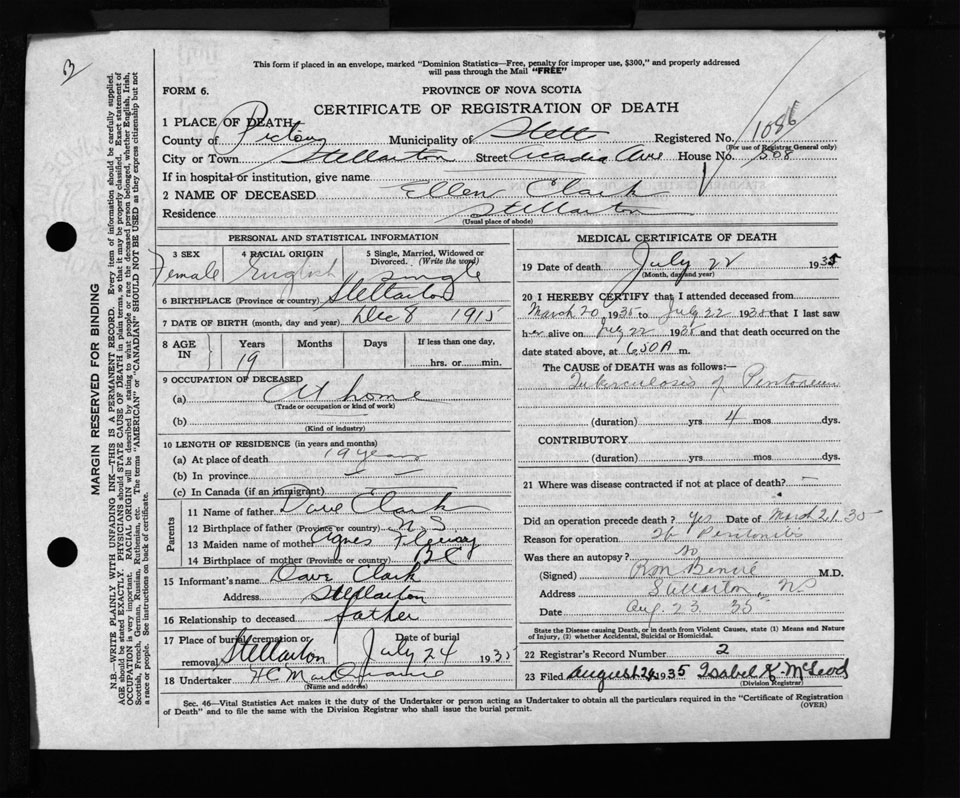 3
This form if placed in an envelope, marked "Dominion Statistics—Free, penalty for improper use, $300," and properly addressed
will pass through the Mail "FREE"
FORM 6.
PROVINCE OF NOVA SCOTIA
CERTIFICATE OF REGISTRATION OF DEATH
1 PLACE OF DEATH
County of Pictou Municipality of Registered No. 1086
(For use of Registrar General only)
City or Town Stellarton Street Acadia Ave House No. 508
If in hospital or institution, give name
2 NAME OF DECEASED Ellen Clark
Residence Stellarton
(Usual place of abode)
PERSONAL AND STATISTICAL INFORMATION
3 SEX 4 RACIAL ORIGIN 5 Single, Married, Widowed or
Divorced. (Write the word)
Female English Single
6 BIRTHPLACE (Province or country) Stellarton
7 DATE OF BIRTH (month, day and year) Dec 8 1915
8 AGE IN Years Months Days If less than one day,
19 hrs. or min.
9 OCCUPATION OF DECEASED
(a) At home
(Trade or occupation or kind of work)
(b)
(Kind of industry)
10 LENGTH OF RESIDENCE (in years and months)
(a) At place of death 19 years
(b) In province
(c) In Canada (if an immigrant)
Parents
11 Name of father Dave Clark
12 Birthplace of father (Province or country) N. S.
13 Maiden name of mother Agnes
14 Birthplace of mother (Province or country)
15 Informant's name Dave Clark
Address Stellarton
16 Relationship to deceased father
17 Place of burial, cremation or Date of burial
removal Stellarton July 24 1935
18 Undertaker
(Name and address)
MEDICAL CERTIFICATE OF DEATH
19 Date of death July 22 1935
(Month, day and year)
20 I HEREBY CERTIFY that I attended deceased from
March 20 1935 to July 22 1935 that I last saw
her alive on July 22 1935 and that death occurred on the
date stated above, at 6.50 A m.
The CAUSE OF DEATH was as follows:—
Tuberculosis of Peritoneum
(duration) yrs 4 mos dys.
CONTRIBUTORY
(duration) yrs. mos. dys.
21 Where was disease contracted if not at place of death? —
Did an operation precede death? Yes Date of March 21.35
Reason for operation: Peritonitis
Was there an autopsy? No
(Signed) M.D.
Address Stellarton N.S
Date Aug. 23. 35
State the Disease causing Death, or in Death from Violent Causes, state (1) Means and Nature
of Injury, (2) whether Accidental, Suicidal or Homicidal.
22 Registrar's Record Number 2
23 Filed August 26 1935 Isabel K. McLeod
(Division Registrar)
Sec. 46—Vital Statistics Act makes it the duty of the Undertaker or person acting as Undertaker to obtain all the particulars required in the "Certificate of Registration
of Death" and to file the same with the Division Registrar who shall issue the burial permit.
(OVER)
MARGIN RESERVED FOR BINDING
N.B.—WRITE PLAINLY WITH UNFADING INK—THIS IS A PERMANENT RECORD. Every item of information should be carefully supplied.
AGE should be stated EXACTLY. PHYSICIANS should STATE CAUSE OF DEATH in plain terms, so that it may be properly classified. Exact statement of
OCCUPATION is very important. RACIAL ORIGIN will be described by stating to what people or race the deceased person belonged, whether English, Irish,
Scottish, French, German, Russian, Ruthenian, etc. The terms "AMERICAN" or "CANADIAN" SHOULD NOT BE USED as they express citizenship but not
a race or people. See instructions on back of certificate.